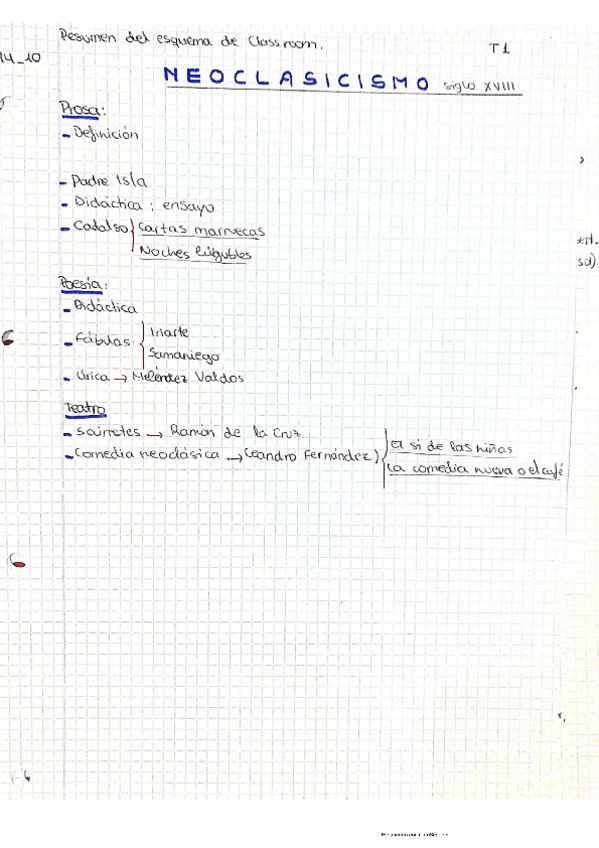 Resumen del esquema de Classroom.
T1
14_10
NEOCLASICISMO siglo XVIII
Prosa:
- Definición
- Padre Isla
- Didáctica : ensayo
- Cadalso Cartas marruecas
Noches lúgubles
Poesía:
- Didáctica
- Fábulas Iriarte
Samaniego
- Lírica → Meléndez Valdos
Teatro
- Sainetes → Ramón de la Cruz
- Comedia neoclásica → (Leandro Fernández) El si de las niñas
La comedia nueva o el café